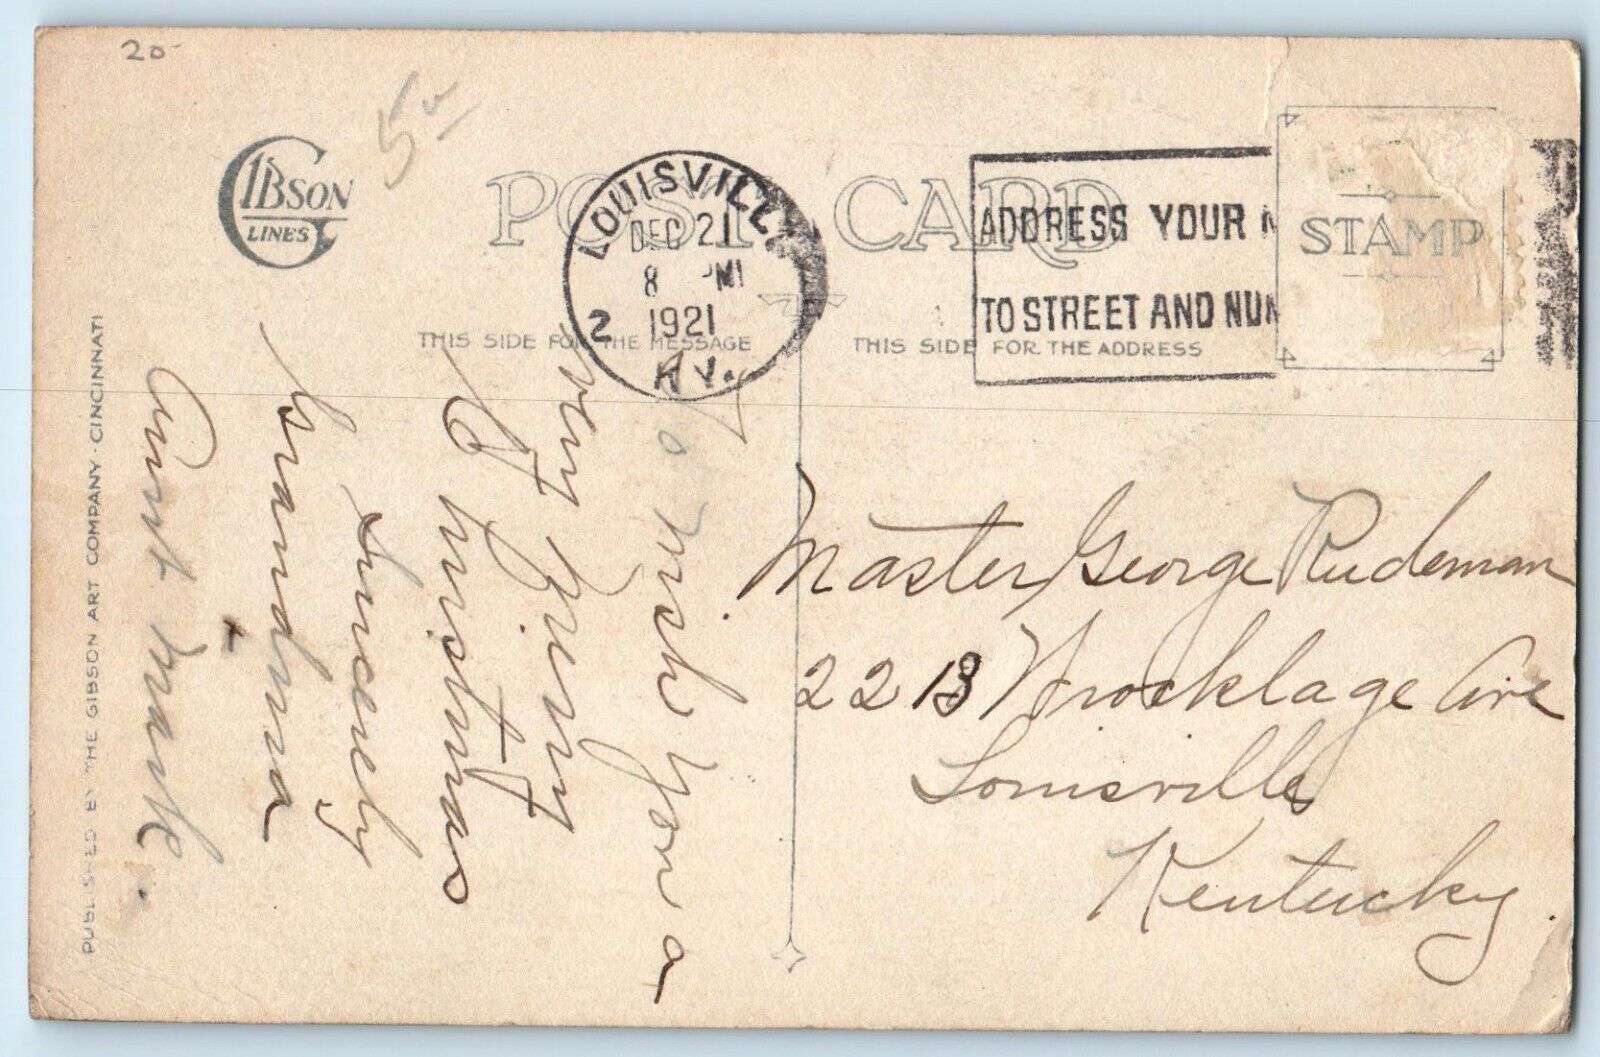 20
5
GIBSON
LINES
POST CARD
LOUISVILLE
DEC 21
8 PM
1921
2
KY.
ADDRESS YOUR
TO STREET AND NUM
STAMP
THIS SIDE FOR THE MESSAGE
THIS SIDE FOR THE ADDRESS
PUBLISHED BY THE GIBSON ART COMPANY · CINCINNATI
To Wish you a
very Merry
Christmas
Sincerely
Grandma
Aunt Mark.
Master George Rudeman
2213 Brocklage Ave
Louisville
Kentucky.